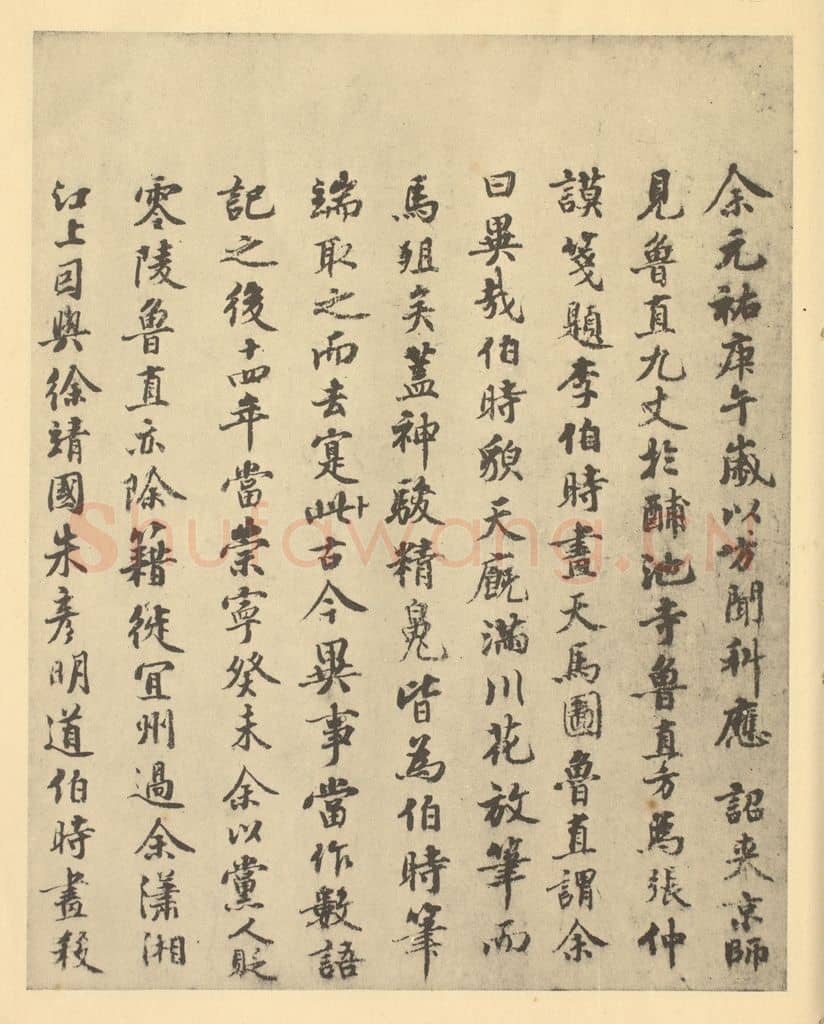 余元祐庚午歲以方聞科應 詔來京師
見魯直九丈於酺池寺魯直方為張仲
謨箋題李伯時畫天馬圖魯直謂余
曰異哉伯時貌天廐滿川花放筆而
馬殂矣蓋神駿精魄皆為伯時筆
端取之而去寔古今異事當作數語
記之後十四年當崇寧癸未余以黨人貶
零陵魯直亦除籍徙宜州過余瀟湘
江上因與徐靖國朱彥明道伯時畫殺
Shufawang.CN